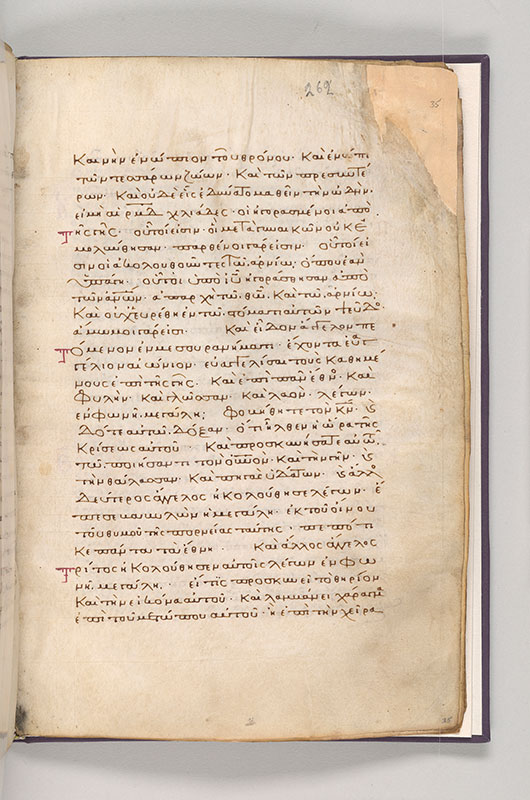 262
35
καινὴν ἐνώπιον τοῦ θρόνου· καὶ ἐνώπι
τῶν τεσσάρων ζώων· καὶ τῶν πρεσβυτέ
ρων· καὶ οὐδεὶς ἐδύνατο μαθεῖν τὴν ὠδὴν·
εἰ μὴ αἱ ρμδ χιλιάδες· οἱ ἠγορασμένοι ἀπὸ
τῆς γῆς· οὗτοι εἰσιν οἱ μετὰ γυναικῶν οὐκ ἐ
μολύνθησαν· παρθένοι γάρ εἰσιν· οὗτοι εἰ
σιν οἱ ἀκολουθοῦντες τῶ ἀρνίω, ὅπου ἐὰν
ὑπάγη· οὗτοι ὑπὸ ιυ ἠγοράσθησαν ἀπὸ
τῶν ανων· ἀπαρχὴ τῶ θω· καὶ τῶ ἀρνίω·
καὶ οὐχ εὑρέθη ἐν τῶ στόματι αὐτῶν ψεῦδο
ἄμωμοι γάρ εἰσι· καὶ εἶδον ἄγγελον πε
τόμενον ἐν μεσουρανήματι· ἔχοντα εὐαγ
γέλιον αἰώνιον εὐαγγελίσαι τοὺς καθημέ
νους ἐπὶ τῆς γῆς· καὶ ἐπὶ πᾶν ἔθνο· καὶ
φυλὴν· καὶ γλῶσσαν· καὶ λαὸν· λέγων·
ἐν φωνῆ μεγάλη· φοβήθητε τὸν κν· κ
δότε αὐτῶ δόξαν· ὅτι ἦλθεν ἡ ὥρα τῆς
κρίσεως αὐτοῦ· καὶ προσκυνήσατε αὐτῶ
τῶ ποιήσαντι τὸν ουνον· καὶ τὴν γῆν· κ
τὴν θάλασσαν· καὶ πηγὰς ὑδάτων· κ ἄλλο
δεύτερος ἄγγελος ἠκολούθησε λέγων· ἔ
πεσε βαβυλὼν ἡ μεγάλη· ἐκ τοῦ οἴνου
τοῦ θυμοῦ τῆς πορνείας ταύτης· πεπότι
κε πάντα τὰ ἔθνη· καὶ ἄλλος ἄγγελος
τρίτος ἠκολούθησεν αὐτοῖς λέγων ἐν φω
νῆ μεγάλη· εἴ τις προσκυνεῖ τὸ θηρίον
καὶ τὴν εἰκόνα αὐτοῦ· καὶ λαμβάνει χάραγμα
ἐπὶ τοῦ μετώπου αὐτοῦ· ἢ ἐπὶ τὴν χεῖρα
35